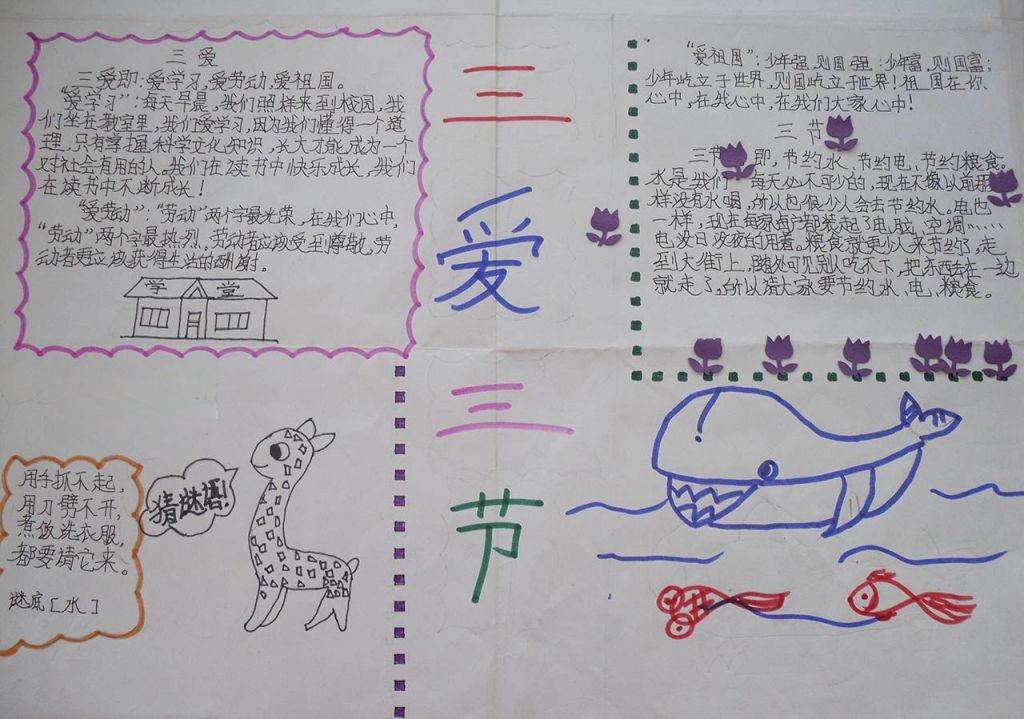 三爱
三爱即：爱学习，爱劳动，爱祖国。
"爱学习"：每天早晨，我们照样来到校园，我
们坐在教室里，我们爱学习，因为我们懂得一个道
理，只有掌握科学文化知识，长大才能成为一个
对社会有用的人。我们在读书中快乐成长，我们
在读书中不断成长！
"爱劳动"："劳动"两个字最光荣，在我们心中，
"劳动"两个字最热烈。劳动者应该受到尊敬，劳
动者更应该获得生活的酬谢。
学堂
三
爱
三
节
"爱祖国"：少年强，则国强：少年富，则国富；
少年屹立于世界，则国屹立于世界！祖国在你
心中，在我心中，在我们大家心中！
三节
三节即，节约水，节约电，节约粮食。
水是我们每天必不可少的，现在不像以前那
样没有水喝，所以也很少人会去节约水。电也
一样，现在每家每户都装起了电脑，空调……
电没日没夜的用着。粮食就更少人来节约了，走
到大街上，随处可见别人吃不下，把东西丢在一边
就走了，所以请大家要节约水、电、粮食。
用手抓不起，
用刀劈不开，
煮饭洗衣服，
都要请它来。
谜底[水]
猜谜语!